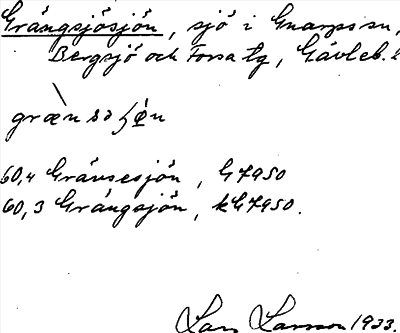 Grängsjösjön, sjö i Gnarps sn,
Bergsjö och Forsa tg, Gävleb. l
græn sɔ ʃö̀n
60,4 Gränsesjön, G7950
60,3 Grängsjön, kG7950.
Lars Larsson 1933.